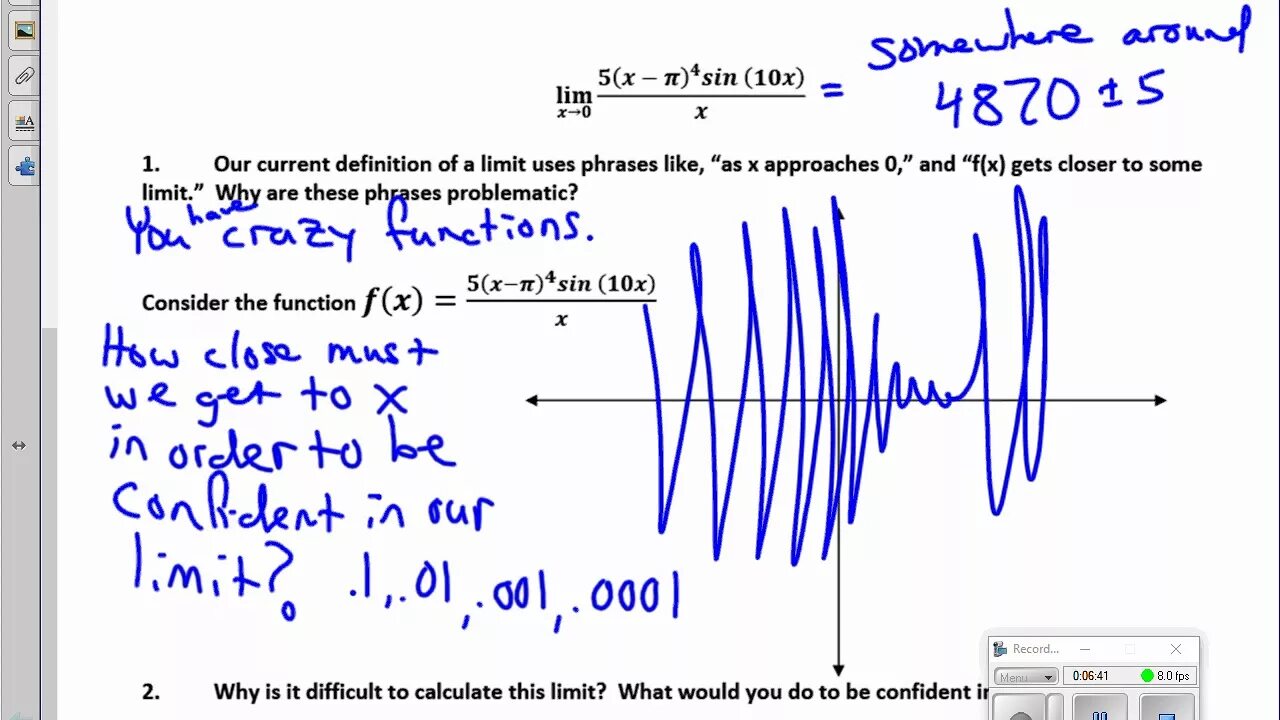 somewhere around
lim x→0 5(x − π)⁴sin (10x) / x = 4870 ± 5
1. Our current definition of a limit uses phrases like, “as x approaches 0,” and “f(x) gets closer to some
limit.” Why are these phrases problematic?
You have crazy functions.
Consider the function f(x) = 5(x−π)⁴sin (10x) / x
How close must
we get to x
in order to be
confident in our
limit? .1, .01, .001, .0001
2. Why is it difficult to calculate this limit? What would you do to be confident in
Record...
Menu
0:06:41
8.0 fps